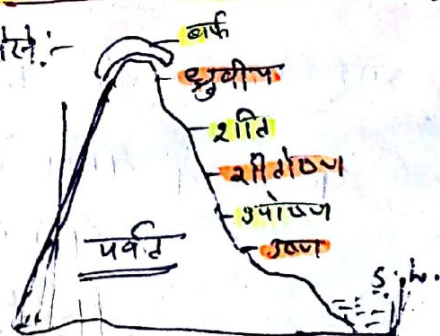 बर्फ
ध्रुवीय
शीत
शीतोष्ण
उपोष्ण
उष्ण
पर्वत